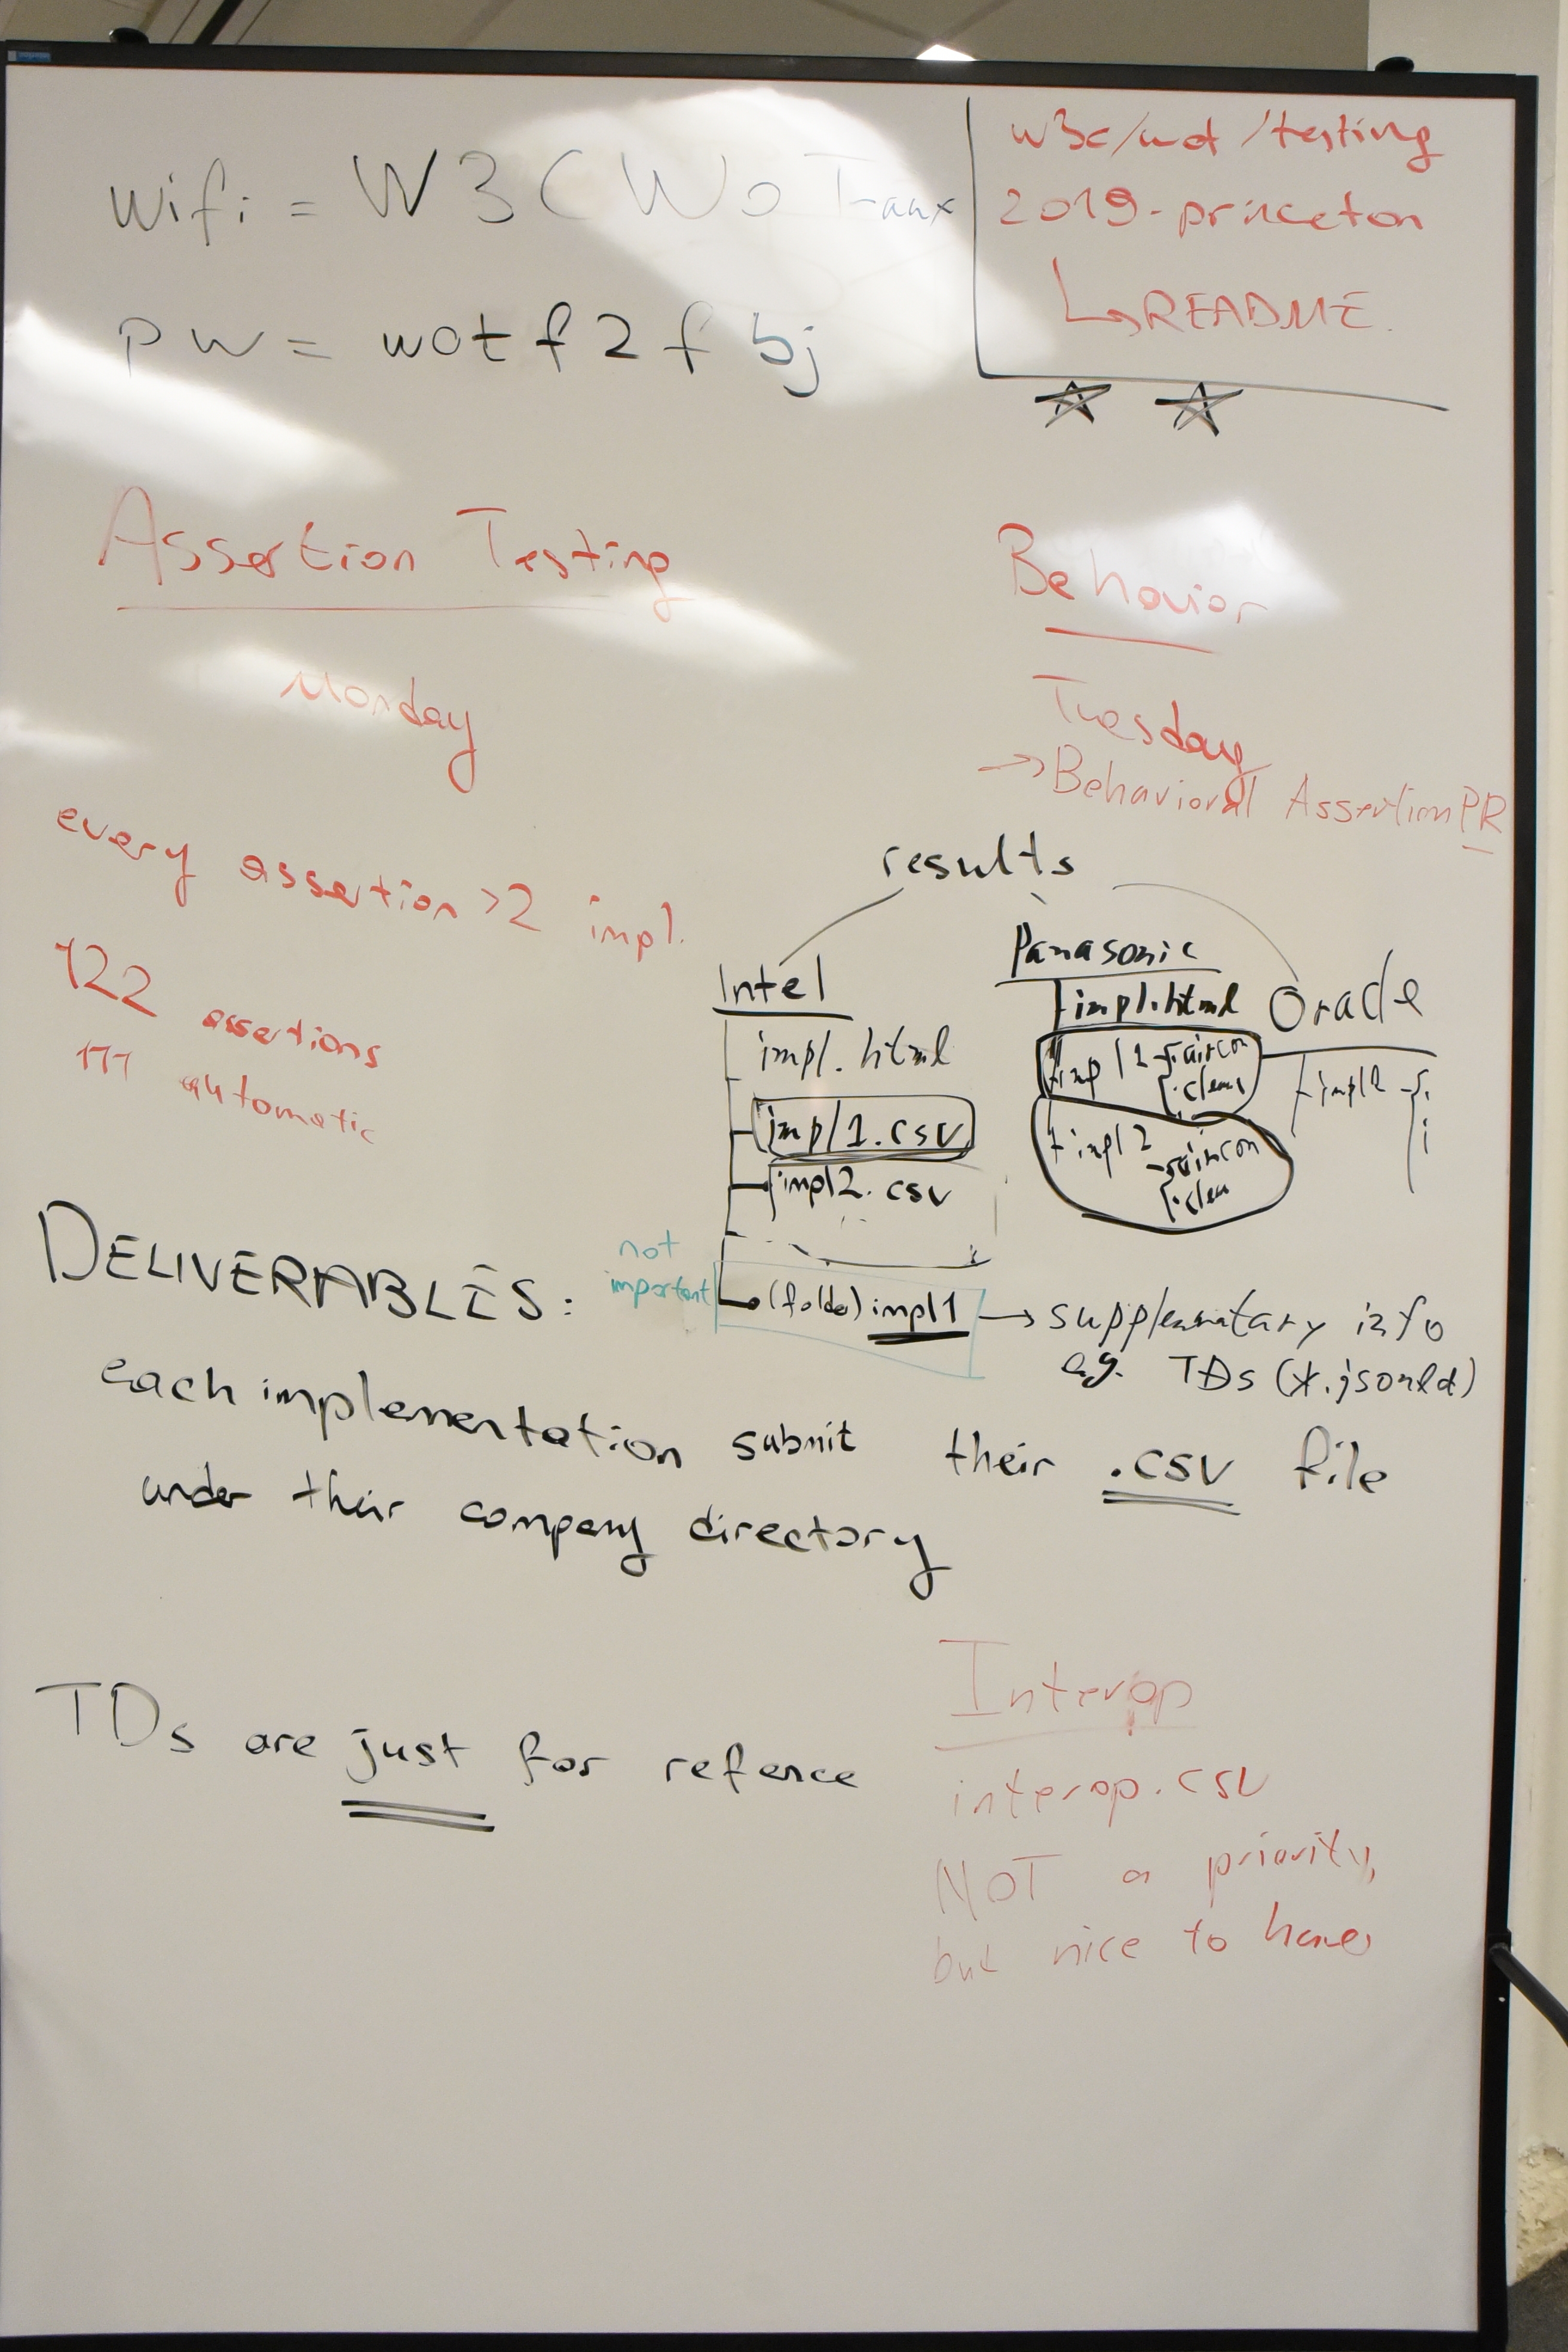 wifi = W3CWoT
pw = wotf2fbj
w3c/wot/testing
2019-princeton
↳README.
Assertion Testing
Monday
every assertion >2 impl.
122 assertions
111 automatic
Behavior
Tuesday
→Behavioral Assertion PR
results
Intel
impl.html
impl1.csv
impl2.csv
not
important
(folder) impl1 → supplementary info
e.g. TDs (*.jsonld)
Panasonic
impl.html
impl1 - aircon
impl2 - aircon
Oracle
impl2
DELIVERABLES:
each implementation submit their .csv file
under their company directory
TDs are just for refence
Interop
interop.csv
NOT a priority,
but nice to have